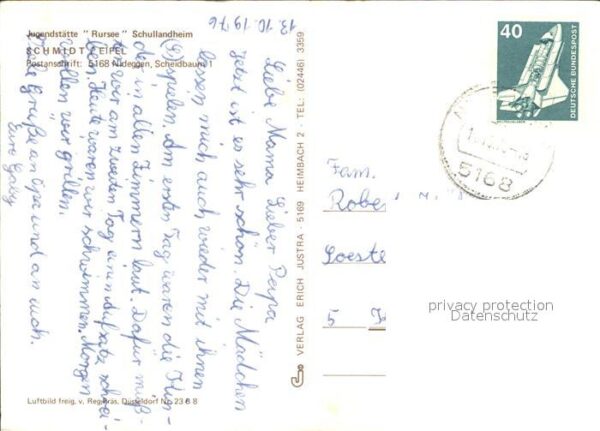 Jugendstätte " Rursee " Schullandheim
SCHMIDT / EIFEL
Postanschrift: 5168 Nideggen, Scheidbaum 1
13.10.1976
Liebe Mama Lieber Papa
Jetzt ist es sehr schön. Die Mädchen
lassen mich auch wieder mit ihnen
spielen. Am ersten Tag waren die Jun-
den in allen Zimmern laut. Dafür muß-
ten wir am zweiten Tag einen Aufsatz schrei-
ben. Heute waren wir schwimmen. Morgen
wollen wir grillen.
Viele Grüße an Opa und an euch.
Eure Gaby
Luftbild freig. v. Reg.Präs. Düsseldorf Nr. 23 8 8
VERLAG ERICH JUSTRA · 5169 HEIMBACH 2 · TEL: (02446) 3359
40
DEUTSCHE BUNDESPOST
5168
Fam.
Robe
Soeste
5
privacy protection
Datenschutz